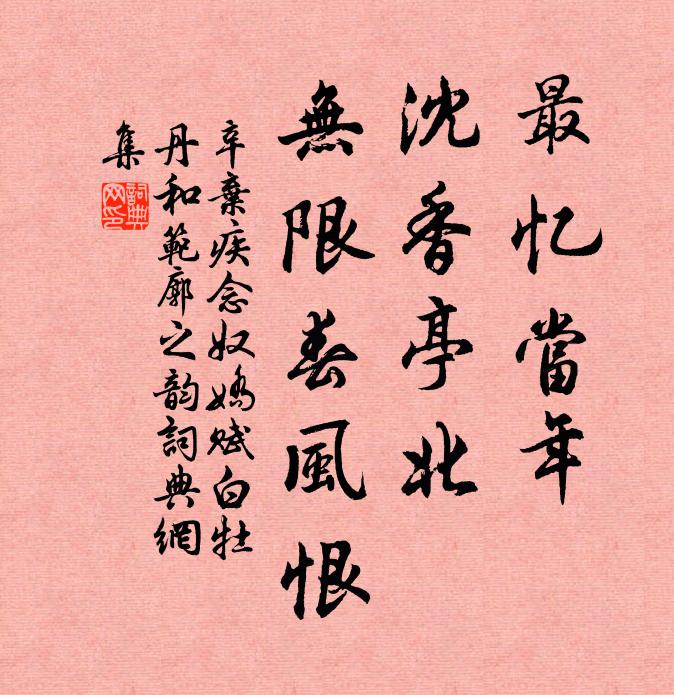 最忆當年
沈香亭北
無限春風恨
辛棄疾念奴嬌賦白牡
丹和範廓之韵詞典網
集
詞典
网印